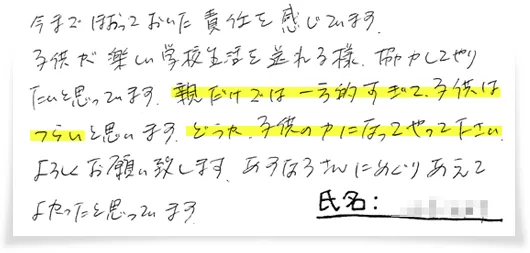 今までほおっておいた責任を感じています。
子供が楽しい学校生活を送れる様、協力してやり
たいと思っています。親だけでは一方的すぎて、子供は
つらいと思います。どうか、子供の力になってやって下さい。
よろしくお願い致します。あすなろさんにめぐりあえて
よかったと思っています。
氏名: